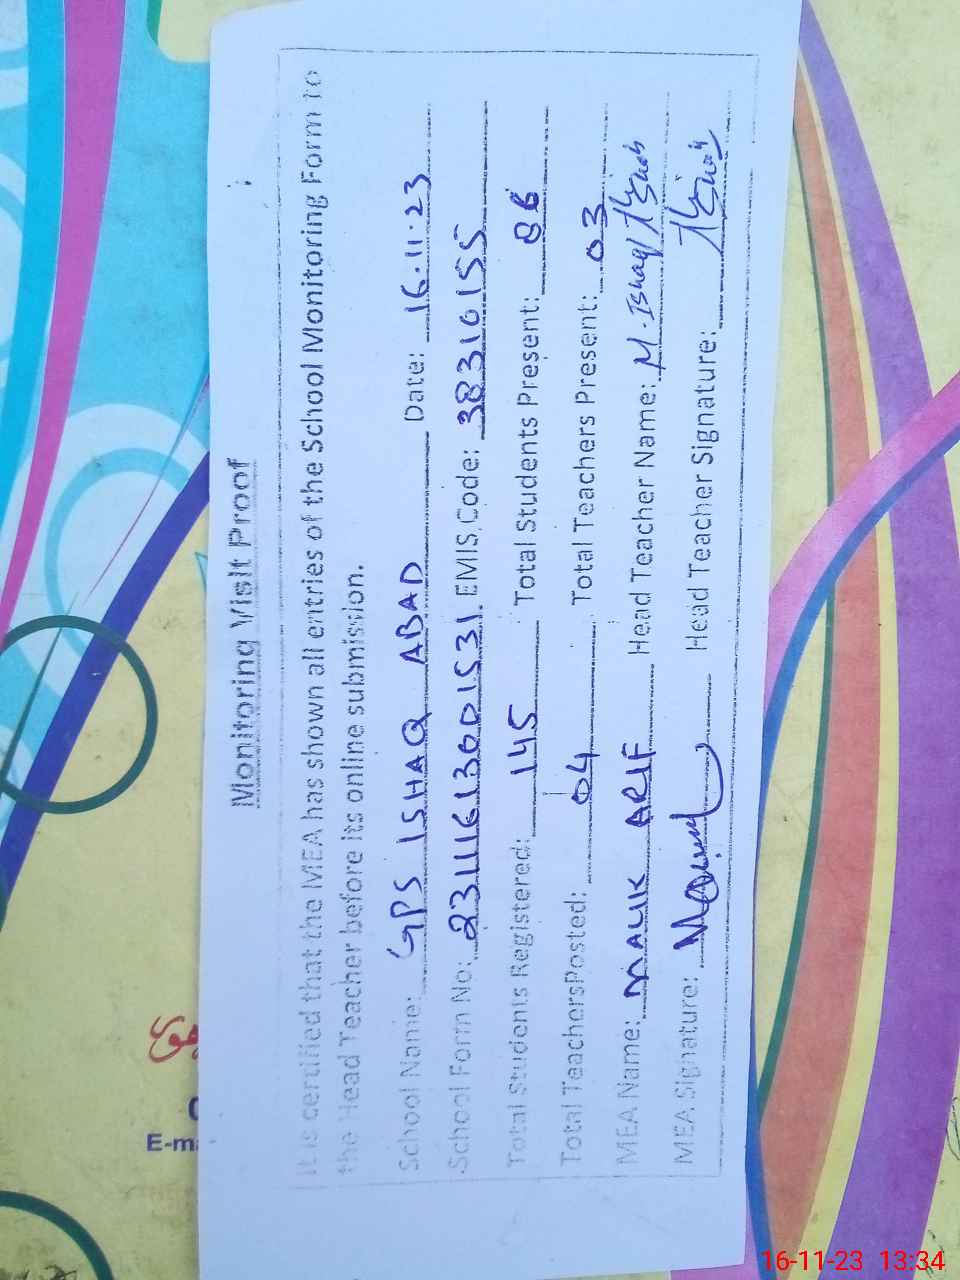 Monitoring Visit Proof
It is certified that the MEA has shown all entries of the School Monitoring Form to
the Head Teacher before its online submission.
School Name: GPS ISHAQ ABAD Date: 16.11.23
School Form No: 23111613001531 EMIS Code: 38310155
Total Students Registered: 145 Total Students Present: 86
Total TeachersPosted: 04 Total Teachers Present: 03
MEA Name: MALIK ARIF Head Teacher Name: M. Ishaq
MEA Signature: Head Teacher Signature:
E-ma
16-11-23 13:34